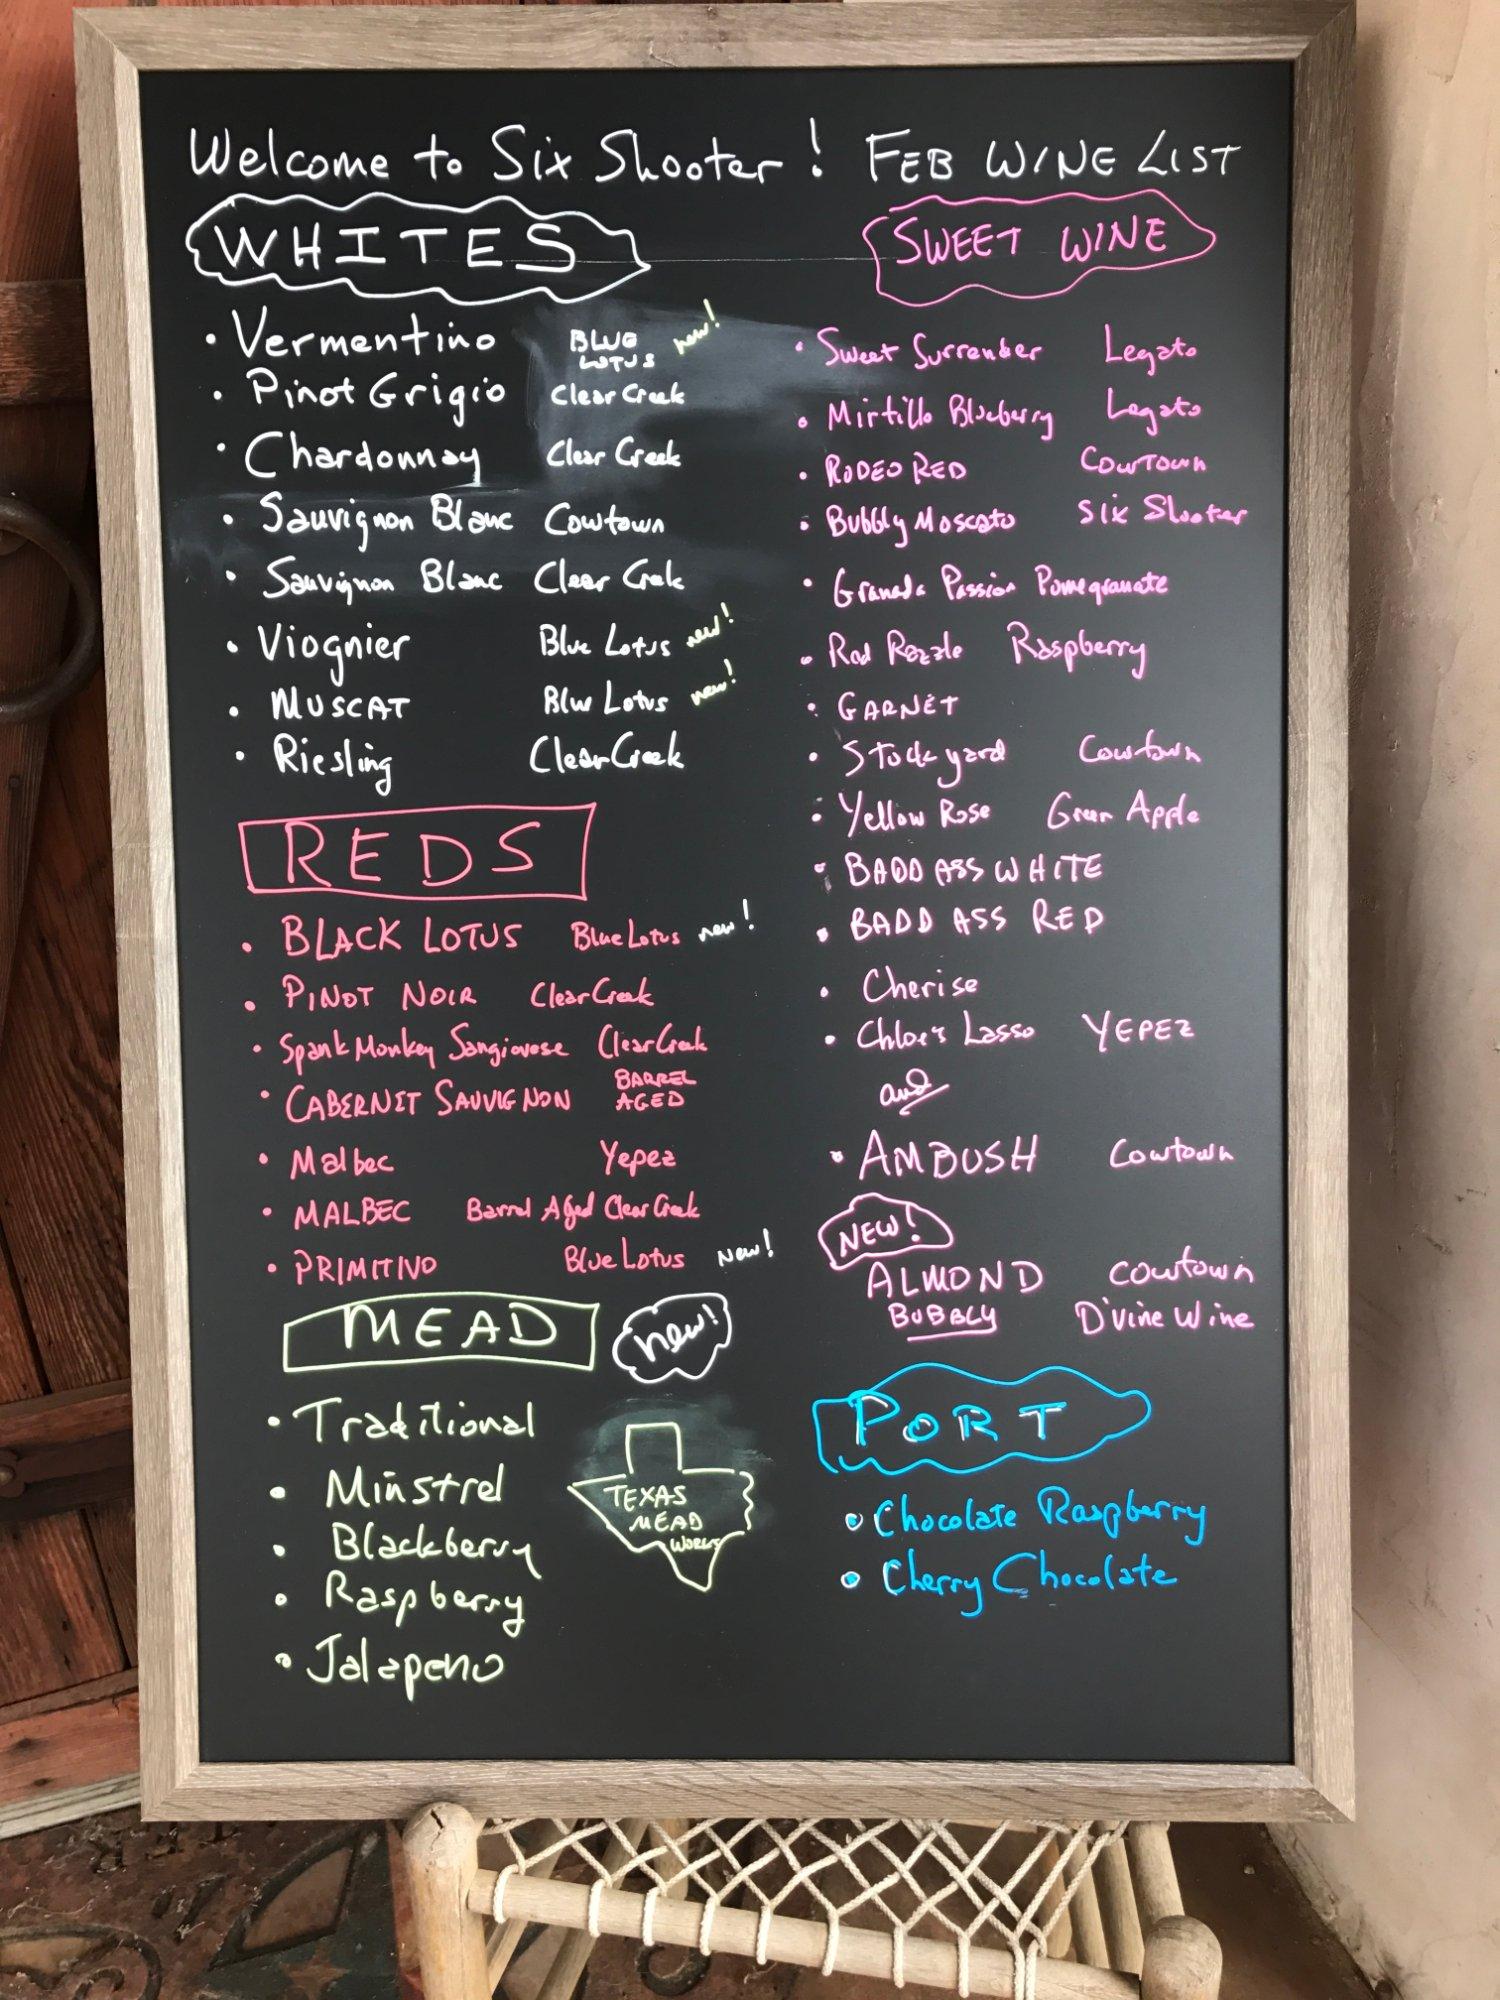 Welcome to Six Shooter! FEB WINE LIST
WHITES
• Vermentino BLUE LOTUS new!
• Pinot Grigio Clear Creek
• Chardonnay Clear Creek
• Sauvignon Blanc Cowtown
• Sauvignon Blanc Clear Creek
• Viognier Blue Lotus new!
• MUSCAT Blue Lotus new!
• Riesling Clear Creek
REDS
• BLACK LOTUS Blue Lotus new!
• PINOT NOIR Clear Creek
• Spank Monkey Sangiovese Clear Creek
• CABERNET SAUVIGNON BARREL AGED
• Malbec Yepez
• MALBEC Barrel Aged Clear Creek
• PRIMITIVO Blue Lotus New!
MEAD new!
• Traditional
• Minstrel
• Blackberry
• Raspberry
• Jalapeno
TEXAS
MEAD
WORKS
SWEET WINE
• Sweet Surrender Legato
• Mirtillo Blueberry Legato
• RODEO RED COWTOWN
• Bubbly Moscato Six Shooter
• Granada Passion Pomegranate
• Red Razzle Raspberry
• GARNET
• Stockyard Cowtown
• Yellow Rose Green Apple
• BADD ASS WHITE
• BADD ASS RED
• Cherise
• Chloe's Lasso YEPEZ
and
• AMBUSH Cowtown
NEW!
ALMOND Cowtown
BUBBLY D'Vine Wine
PORT
• Chocolate Raspberry
• Cherry Chocolate